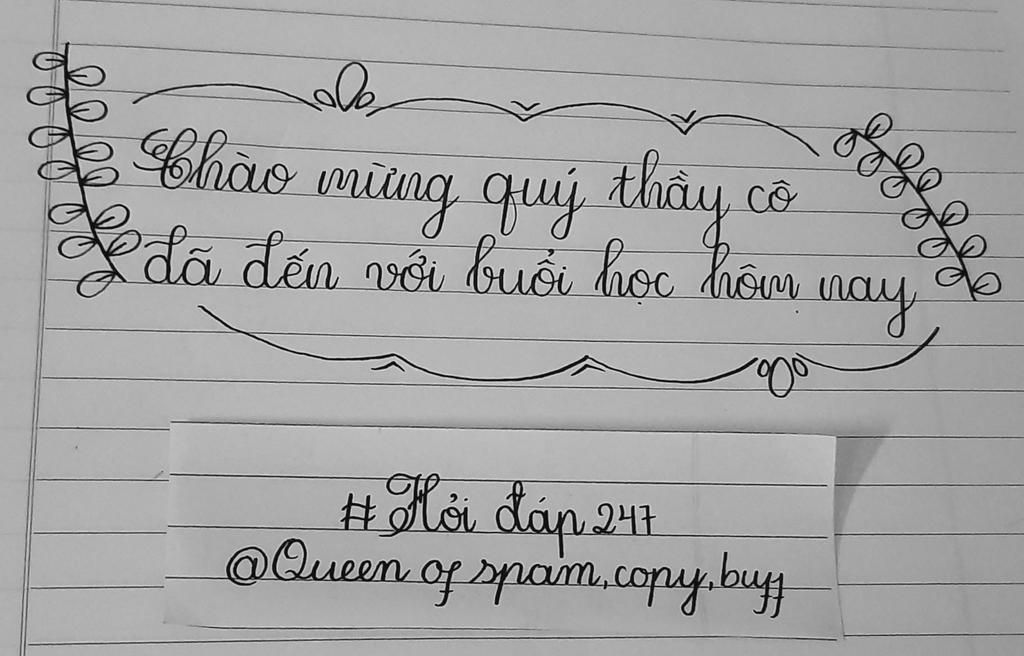 Chào mừng quý thầy cô
đã đến với buổi học hôm nay
#Hỏi đáp 247
@Queen of spam,copy,buff